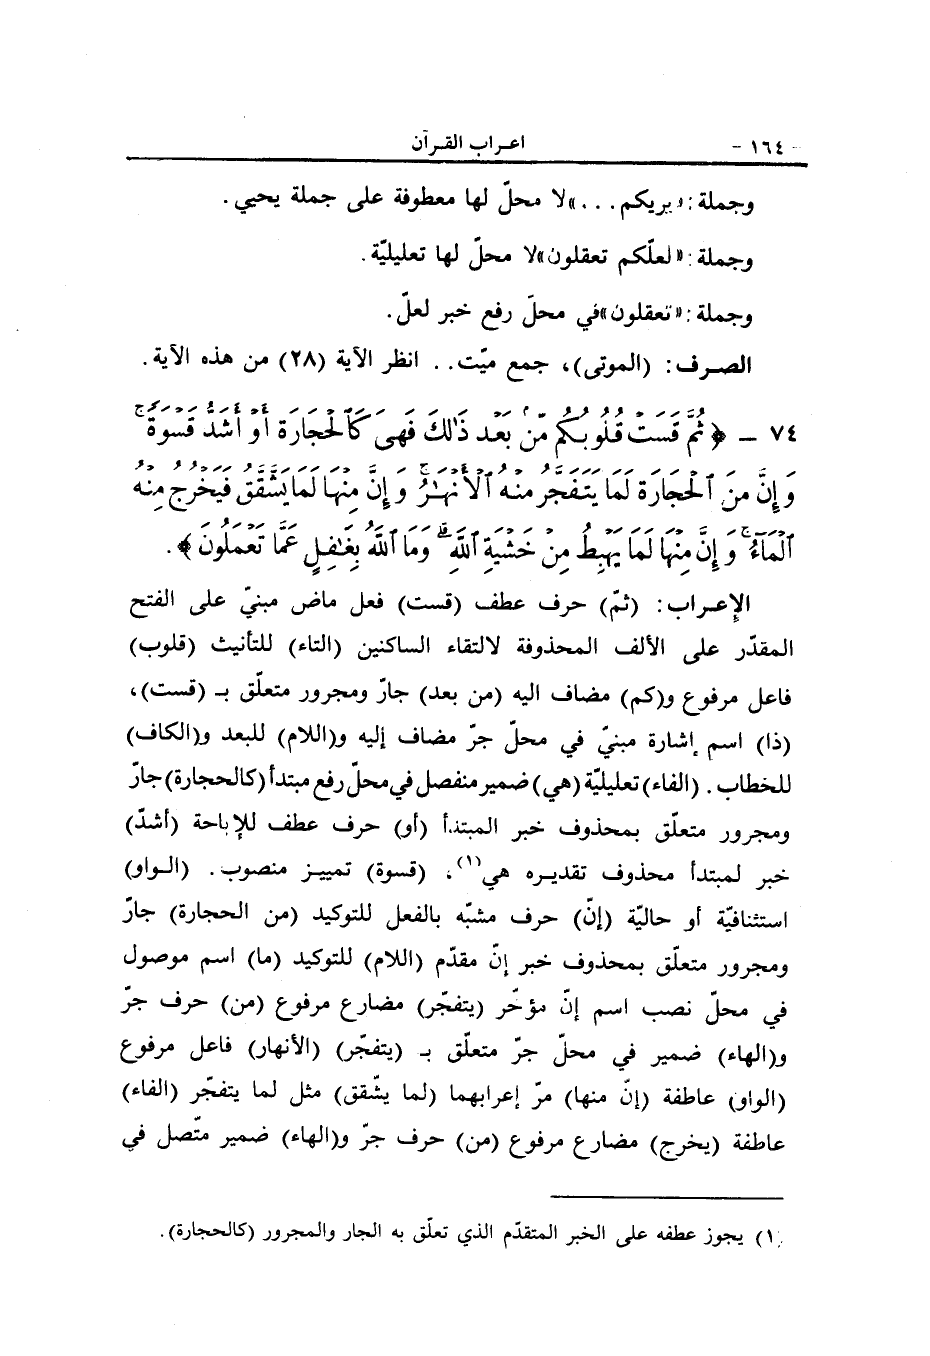 - ١٦٤ -
اعـراب القـرآن
وجملة: «يريكم...» لا محلّ لها معطوفة على جملة يحيي.
وجملة: «لعلّكم تعقلون» لا محلّ لها تعليليّة.
وجملة: «تعقلون» في محلّ رفع خبر لعلّ.
الصـرف: (الموتى)، جمع ميّت.. انظر الآية (٢٨) من هذه الآية.
٧٤ - ﴿ثُمَّ قَسَتْ قُلُوبُكُم مِّنۢ بَعْدِ ذَٰلِكَ فَهِىَ كَٱلْحِجَارَةِ أَوْ أَشَدُّ قَسْوَةً ۚ
وَإِنَّ مِنَ ٱلْحِجَارَةِ لَمَا يَتَفَجَّرُ مِنْهُ ٱلْأَنْهَٰرُ ۚ وَإِنَّ مِنْهَا لَمَا يَشَّقَّقُ فَيَخْرُجُ مِنْهُ
ٱلْمَآءُ ۚ وَإِنَّ مِنْهَا لَمَا يَهْبِطُ مِنْ خَشْيَةِ ٱللَّهِ ۗ وَمَا ٱللَّهُ بِغَٰفِلٍ عَمَّا تَعْمَلُونَ﴾.
الإعـراب: (ثمّ) حرف عطف (قست) فعل ماض مبنيّ على الفتح
المقدّر على الألف المحذوفة لالتقاء الساكنين (التاء) للتأنيث (قلوب)
فاعل مرفوع و(كم) مضاف اليه (من بعد) جارّ ومجرور متعلّق بـ (قست)،
(ذا) اسم إشارة مبنيّ في محلّ جرّ مضاف إليه و(اللام) للبعد و(الكاف)
للخطاب. (الفاء) تعليليّة (هي) ضمير منفصل في محلّ رفع مبتدأ (كالحجارة) جارّ
ومجرور متعلّق بمحذوف خبر المبتدأ (أو) حرف عطف للإباحة (أشدّ)
خبر لمبتدأ محذوف تقديره هي(١)، (قسوة) تمييـز منصوب. (الـواو)
استئنافيّة أو حاليّة (إنّ) حرف مشبّه بالفعل للتوكيد (من الحجارة) جارّ
ومجرور متعلّق بمحذوف خبر إنّ مقدّم (اللام) للتوكيد (ما) اسم موصول
في محلّ نصب اسم إنّ مؤخّر (يتفجّر) مضارع مرفوع (من) حرف جرّ
و(الهاء) ضمير في محلّ جرّ متعلّق بـ (يتفجّر) (الأنهار) فاعل مرفوع
(الواو) عاطفة (إنّ منها) مرّ إعرابهما (لما يشّقق) مثل لما يتفجّر (الفاء)
عاطفة (يخرج) مضارع مرفوع (من) حرف جرّ و(الهاء) ضمير متّصل في
(١) يجوز عطفه على الخبر المتقدّم الذي تعلّق به الجار والمجرور (كالحجارة).